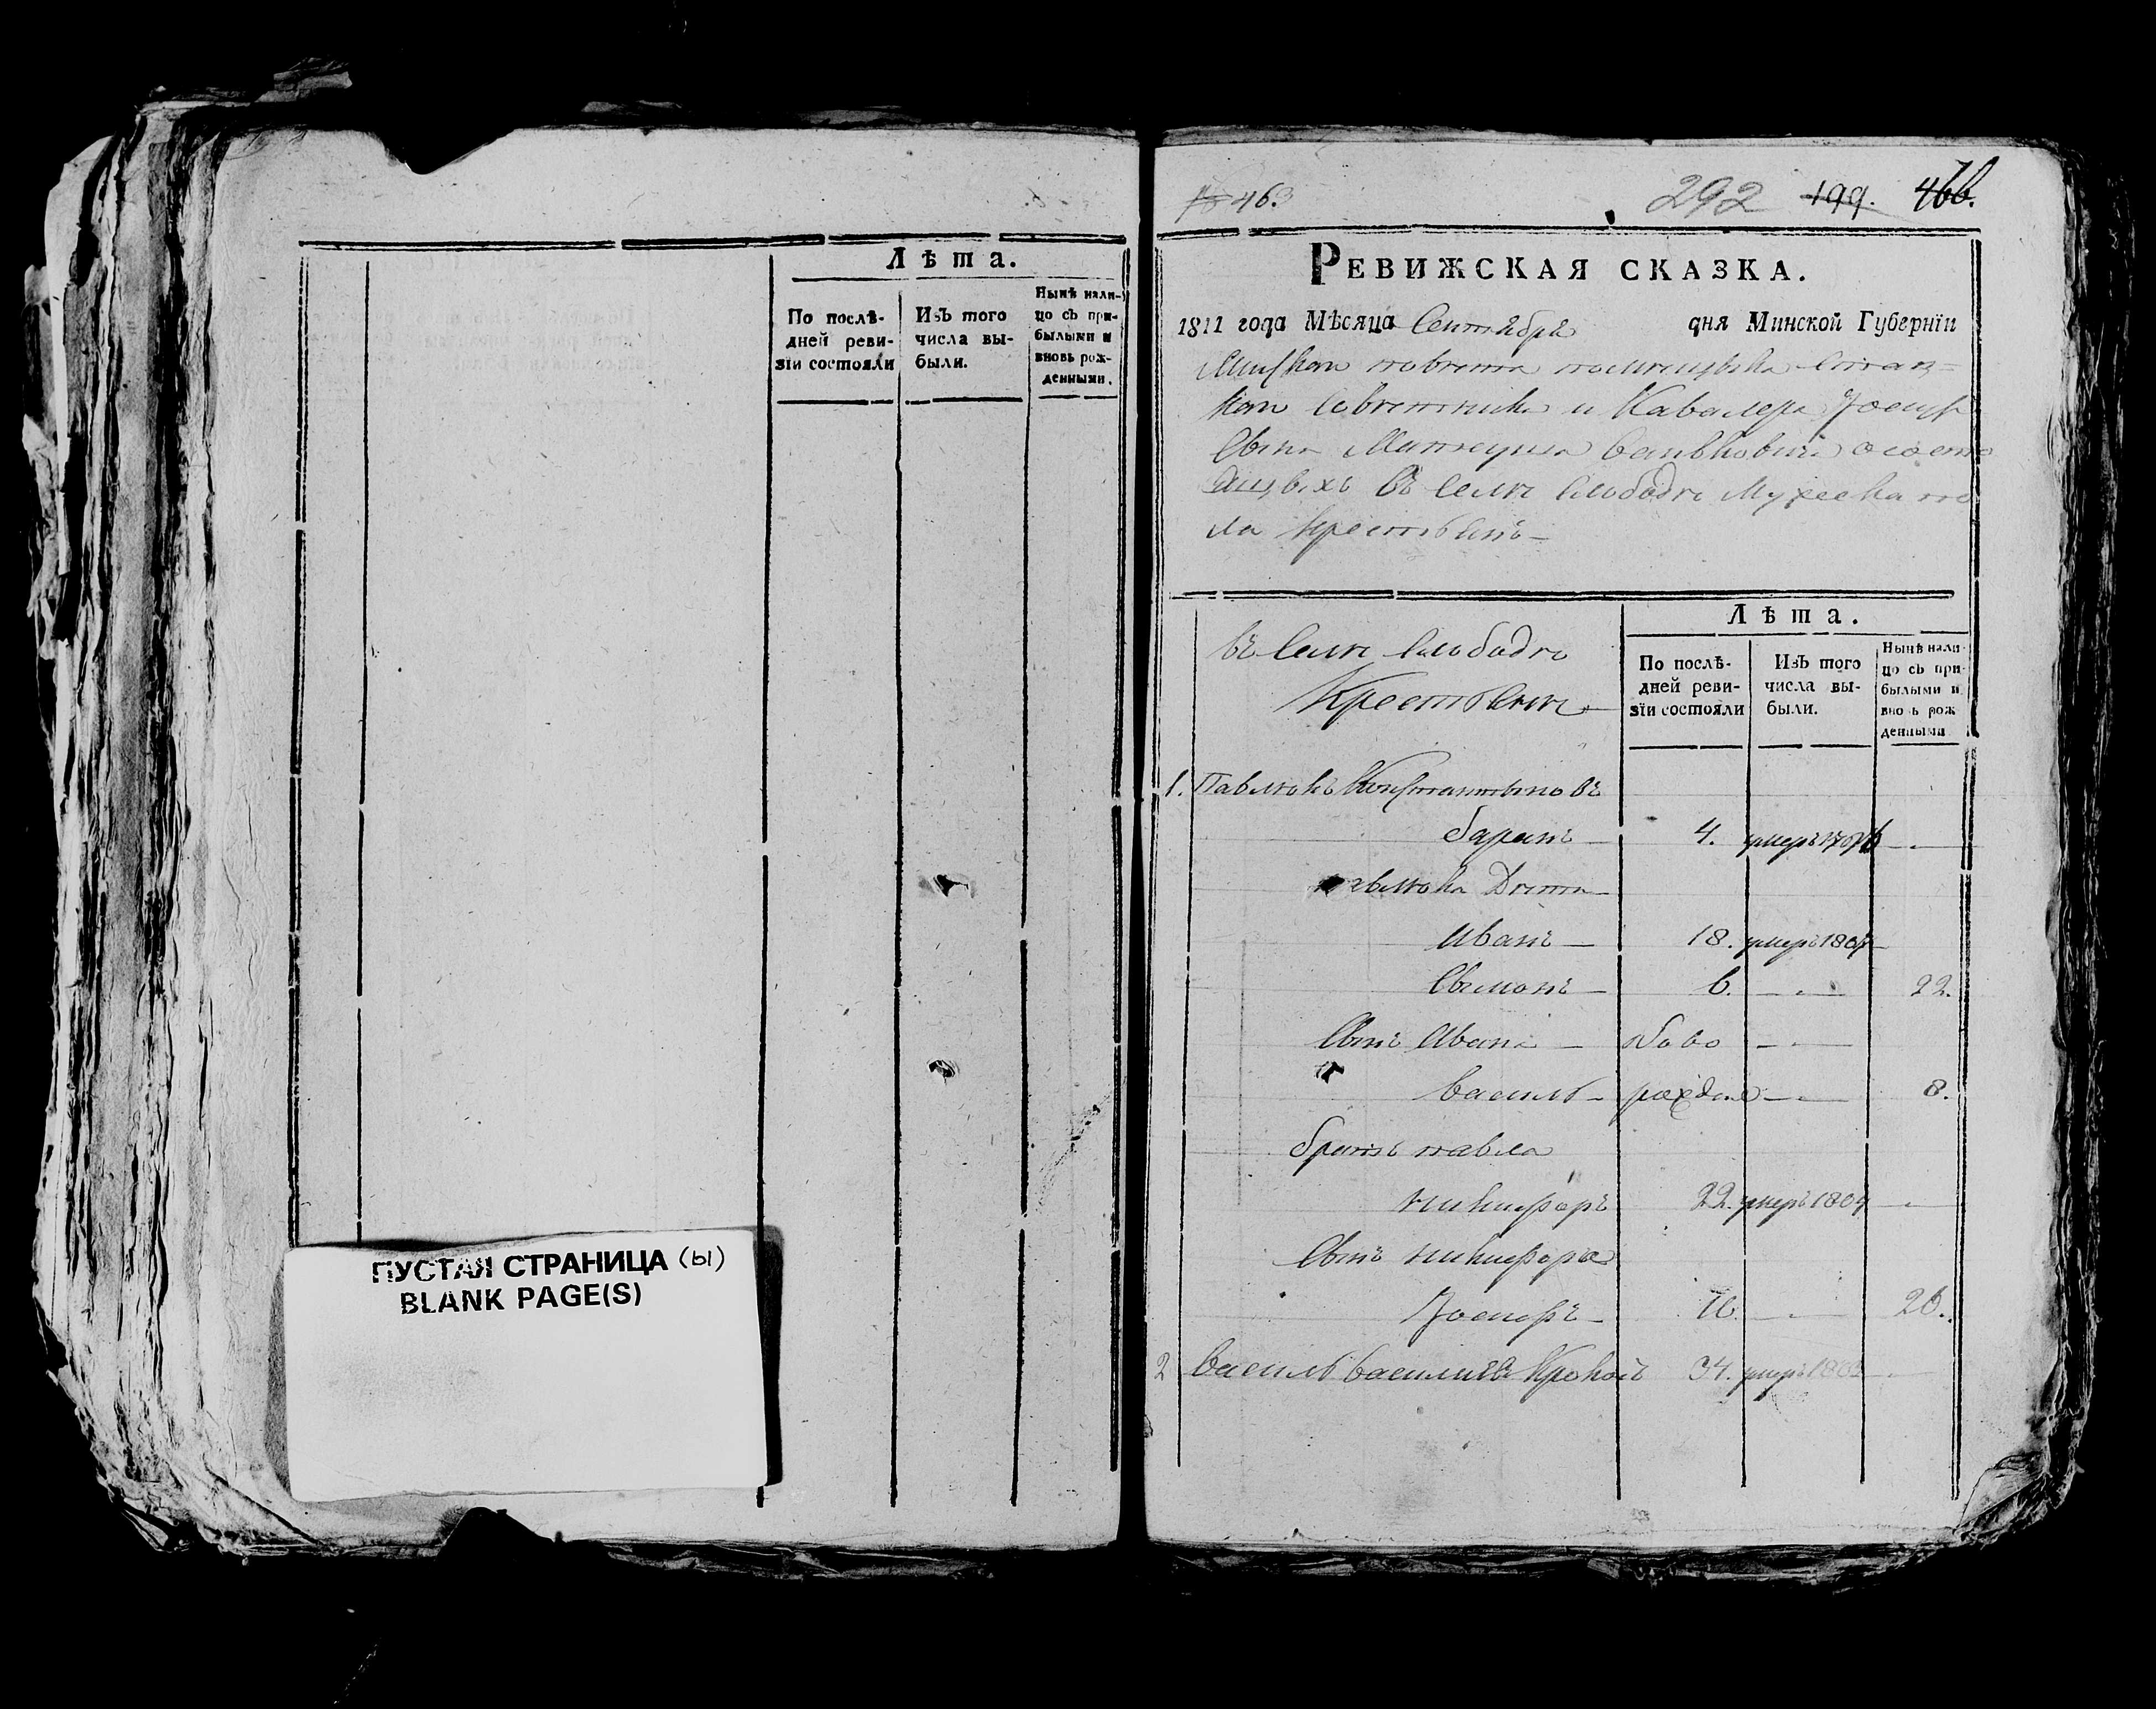 Лѣта.
По послѣ-
дней реви-
зїи состояли
Изъ того
числа вы-
были.
Нынѣ нали-
цо съ при-
былыми и
вновь рож-
денными.
ПУСТАЯ СТРАНИЦА (ы)
BLANK PAGE(S)
463
292 199. 466.
Ревижская сказка.
1811 года Мѣсяца Сентября дня Минской Губернїи
Минскаго повѣта помѣщика Статз=
каго Совѣтника и Кавалера Іосиф
Сына Ваньковича
въ Селѣ Слободѣ по
ла Крестьянъ
въ Селѣ Слободѣ
Крестьяне
Лѣта.
По послѣ-
дней реви-
зїи состояли
Изъ того
числа вы-
были.
Нынѣ нали-
цо съ при-
былыми и
вновь рож
денными
1. Павлюкъ Константыновъ
баранъ — 4. умеръ
Павлюка Дѣти
Иванъ — 18. умеръ 1807
Сымонъ — 6. 22.
Сынъ Ивана — Ново
Василь — рожден 8.
братъ павла
никифоръ 22. умеръ 1809
Сынъ никифора
Іосифъ — 26.
2 Василь Васильевъ 34. умеръ